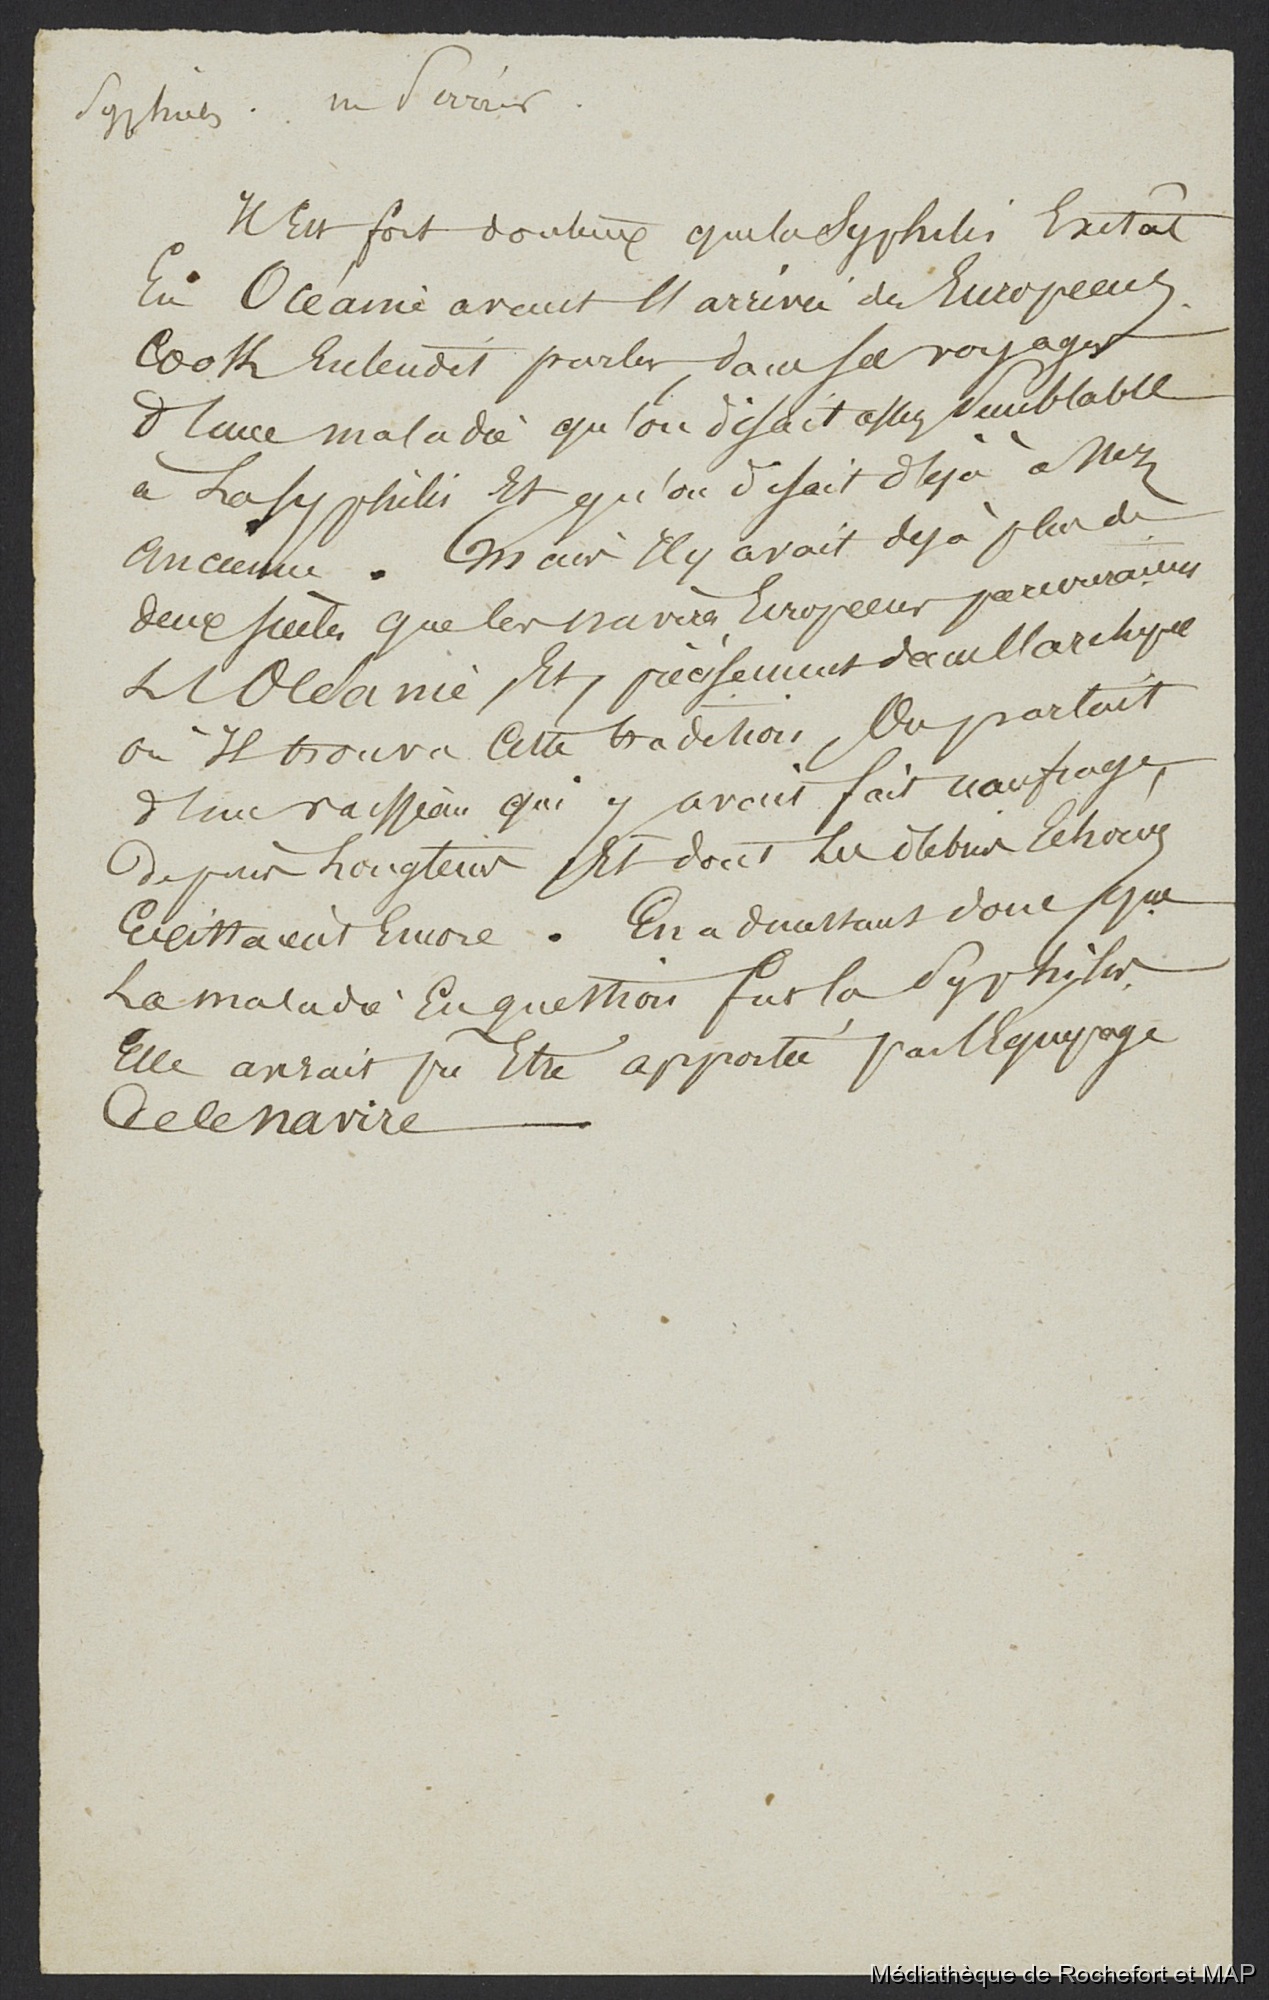 Syphilis.
Il Est fort douteux que la Syphilis Existât
En Océanie avant l'arrivée des Européens.
Cook Entendit parler, dans ses voyages
d'une maladie qu'on disait assez Semblable
à La Syphilis Et qu'on disait déjà assez
ancienne. Mais Il y avait déjà plus de
deux siècles que les navires Européens parcouraient
L'Océanie, Et, précisément dans l'archipel
où Il trouva Cette tradition, On parlait
d'un vaisseau qui y avait fait naufrage,
Depuis Longtems Et dont Les débris Echoués
Existaient Encore. En admettant donc que
La maladie En question fut la Syphilis,
Elle aurait pu Etre apportée par l'Equipage
de ce Navire
Médiathèque de Rochefort et MAP